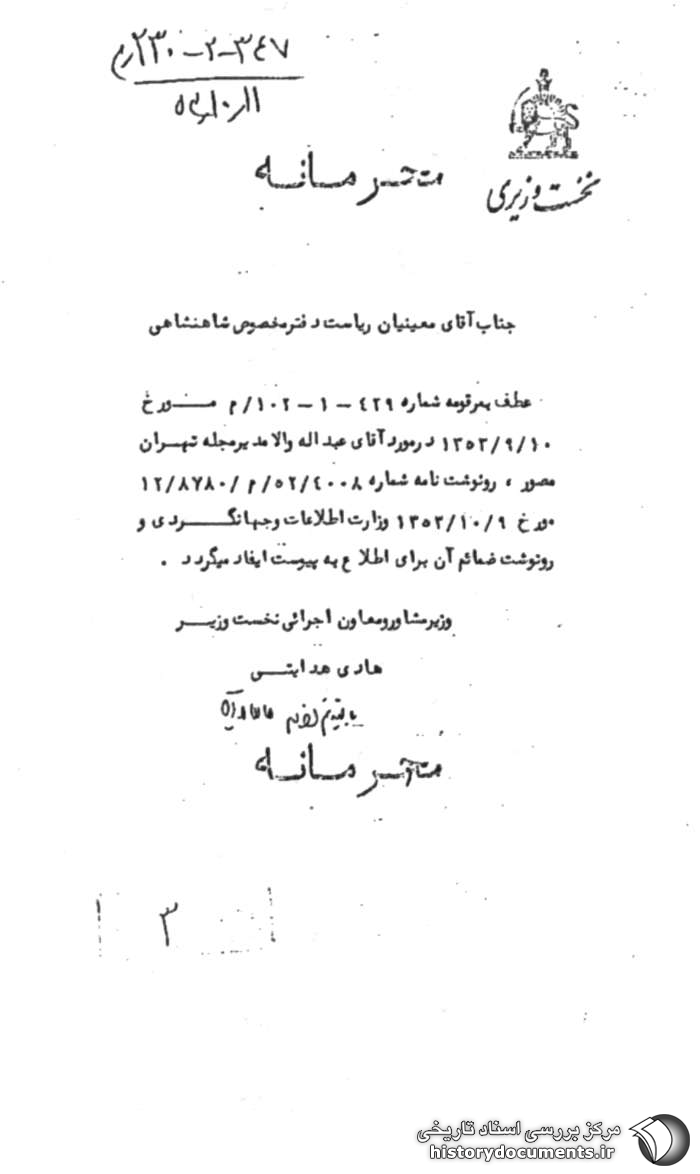 ۳۴۷-۲-۲۳۰/م
نخست وزیری
محرمانه
جناب آقای معینیان ریاست دفتر مخصوص شاهنشاهی
عطف بمرقومه شماره ۴۲۹ - ۱ - ۱۰۲/م مورخ
۱۳۵۳/۹/۱۰ درمورد آقای عبداله والا مدیرمجله تهران
مصور ، رونوشت نامه شماره ۱۲/۸۷۸۰/م/۵۲/۴۰۰۸
مورخ ۱۳۵۳/۱۰/۹ وزارت اطلاعات وجهانگردی و
رونوشت ضمائم آن برای اطلاع به پیوست ایفاد میگردد .
وزیرمشاور ومعاون اجرائی نخست وزیر
هادی هدایتی
محرمانه
۳
مرکز بررسی اسناد تاریخی
historydocuments.ir